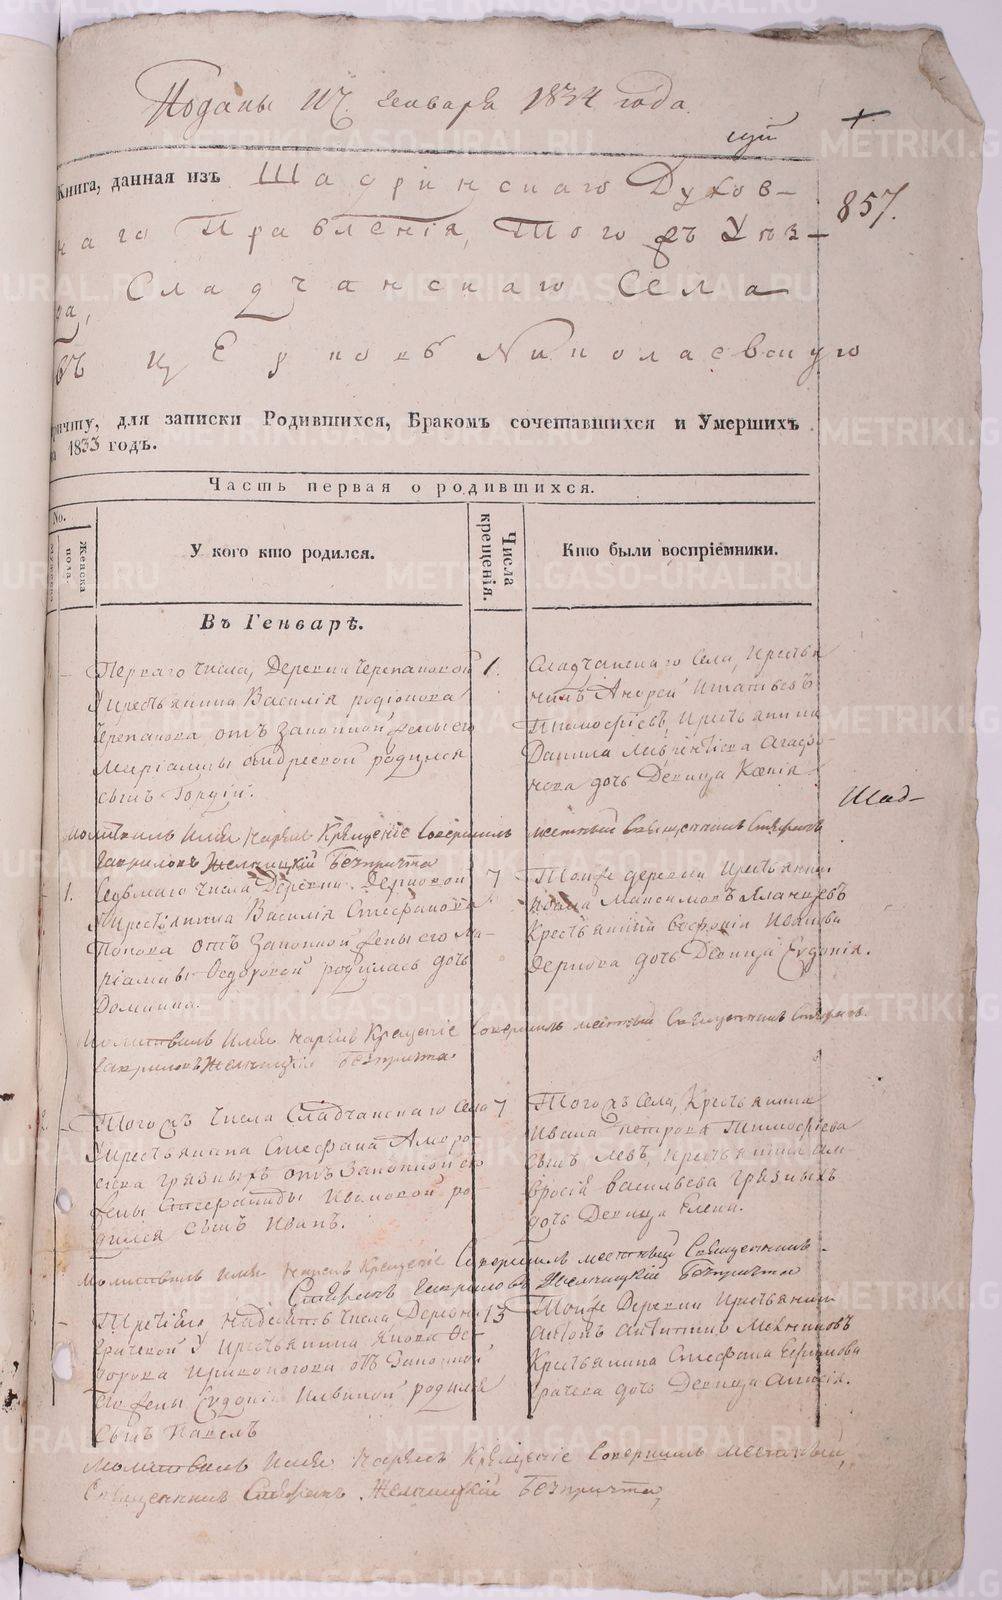 Поданы генваря 1834 года
щій
Книга, данная изъ Шадринскаго Духов-
наго Правленія, Того жъ Уѣз-
да, Сладчанскаго Села
въ церковь Николаевскую
857.
причту, для записки Родившихся, Бракомъ сочетавшихся и Умершихъ
1833 годъ.
Часть первая о родившихся.
No.
Женска пола.
У кого кто родился.
Числа крещенія.
Кто были воспріемники.
Въ Генварѣ.
Перваго числа, Деревни Черепановой
У крестьянина Василія Родіонова
Черепанова отъ законной жены его
Маріамны Андреевой родился
сынъ Гордій.
1.
Сладчанскаго Села, крестья
нинъ Андрей Игнатьевъ
Тимофѣевъ, крестьянина
Данила Лаврентіева Агафо-
нова дочь Девица Ксенія
Шад-
Молитвилъ Имя нарекъ Крещеніе Совершилъ местный Священникъ Стефанъ
Гавриловъ Желницкій Безъ причта
1.
Седьмаго числа Деревни Дерновой
У крестьянина Василія Стефанова
Попова отъ Законной жены его Ма-
ріамны Федоровой родилась дочь
Домнина.
7
Той же деревни крестьянинъ
Иванъ Максимовъ
Крестьянина Иванова
Дернова дочь Девица Евдокія.
Молитвилъ Имя нарекъ Крещеніе Совершилъ местный Священникъ Стефанъ
Гавриловъ Желницкій Безъ причта
2.
Того жъ числа Сладчанскаго Села
У крестьянина Стефана Амвро-
сіева Грязныхъ отъ Законной его
жены Стефаниды Ивановой ро-
дился сынъ Иванъ.
7
Того жъ Села, Крестьянина
Ивана Петрова Тимофѣева
сынъ Левъ, крестьянина Ам-
вросія Васильева Грязныхъ
дочь Девица Елена.
Молитвилъ Имя нарекъ Крещеніе Совершилъ местный Священникъ
Стефанъ Гавриловъ Желницкій Безъ причта
Третіяго надесять числа Деревни
Грачевой У крестьянина Якова Фе-
дорова Кривоногова отъ Законной
его жены Евдокіи Ильиной родился
сынъ Павелъ
13
Той же Деревни крестьянинъ
Антонъ Антиповъ Мельниковъ
Крестьянина Стефана Ефимова
Грачева дочь Девица Анисія.
Молитвилъ Имя нарекъ Крещеніе Совершилъ местный
Священникъ Стефанъ Желницкій Безъ причта
METRIKI.GASO-URAL.RU